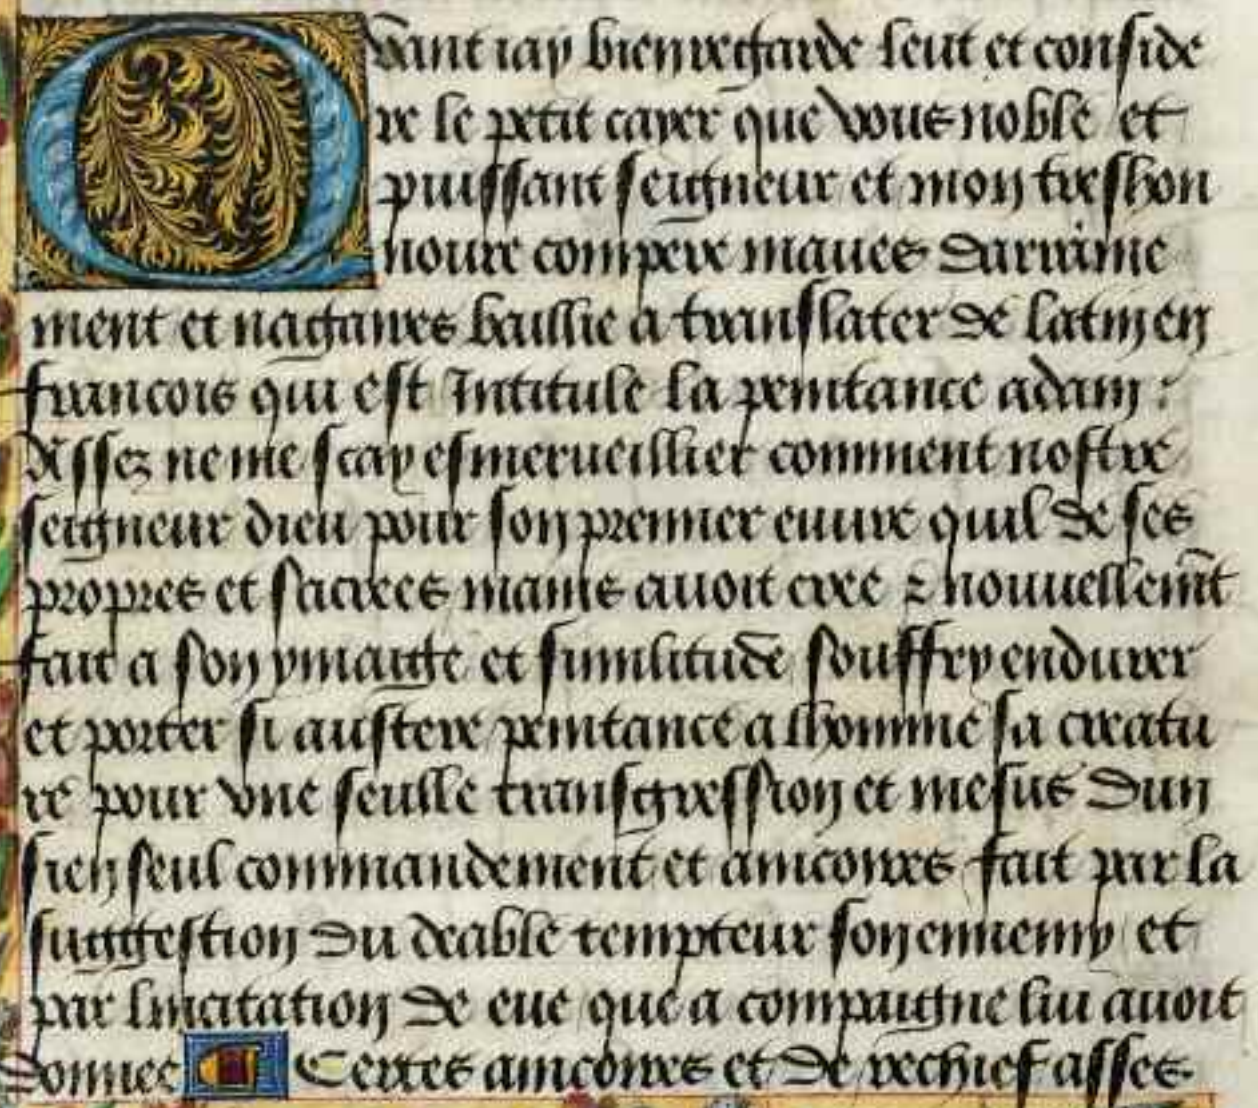 Quant iay bien regarde leut et conside
re le petit cayer que vous noble et
puissant seigneur et mon treshon
noure compere maues darraime
ment et nagaires baillie a translater de latin en
francois qui est Intitule la penitance adam :
Assez ne me scay esmerueillier comment nostre
seigneur dieu pour son premier euure quil de ses
propres et sacrees mains auoit cree ⁊ nouuellem̄t
fait a son ymaige et similitude souffry endurer
et porter si austere penitance a lhomme sa creatu
re pour vne seulle transgression et mesus dun
sien seul commandement et aincores fait par la
suggestion du deable tempteur son ennemy et
par lincitation de eue que a compaigne lui auoit
donnee Certes aincores et de rechief asses